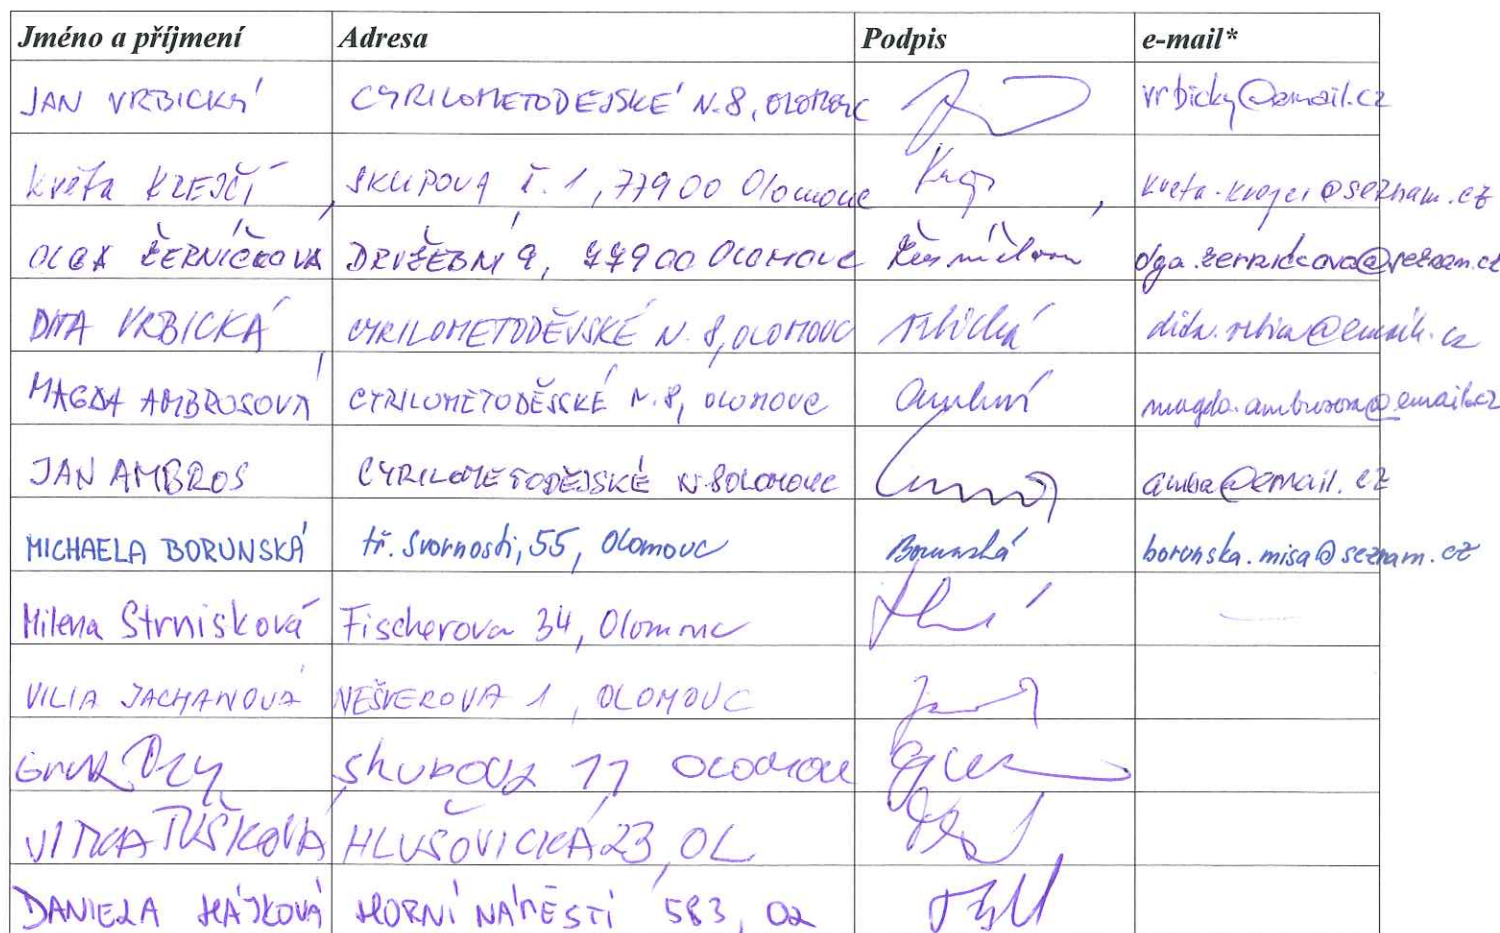 Jméno a příjmení Adresa Podpis e-mail*
JAN VRBICKÝ CYRILOMETODEJSKÉ N.8, OLOMOUC vrbicky@email.cz
Květa KREJČÍ SKUPOVA č. 1, 77900 Olomouc kveta.krejci@seznam.cz
OLGA ŽERNÍČKOVÁ DRUŽEBNÍ 9, 77900 OLOMOUC olga.zernickova@seznam.cz
DITA VRBICKÁ CYRILOMETODĚJSKÉ N. 8, OLOMOUC Vrbická
MAGDA AMBROSOVÁ CYRILOMETODĚJSKÉ N.8, OLOMOUC magda.ambrosova@email.cz
JAN AMBROS CYRILOMETODĚJSKÉ N.8 OLOMOUC amba@email.cz
MICHAELA BORUNSKÁ tř. Svornosti, 55, Olomouc Borunská borunska.misa@seznam.cz
Milena Strnisková Fischerova 34, Olomouc
VILIA JACHANOVÁ NEŠVEROVA 1, OLOMOUC
11 OLOMOUC
TUŠKOVÁ HLUŠOVICKÁ 23, OL
DANIELA HÁJKOVÁ HORNÍ NÁMĚSTÍ 583, OL